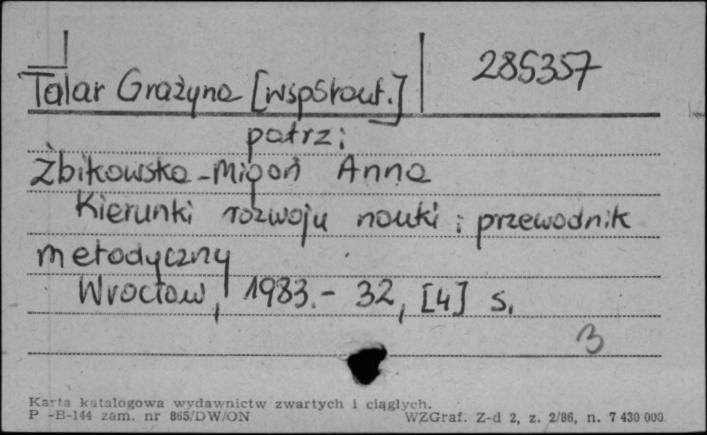 Talar Grażyna [współaut.] 285357
patrz:
Żbikowska-Migoń Anna
Kierunki rozwoju nauki : przewodnik
metodyczny
Wrocław, 1983.- 32, [4] s.
3
Karta katalogowa wydawnictw zwartych i ciągłych.
P -B-144 zam. nr 865/DW/ON WZGraf. Z-d 2, z. 2/86, n. 7 430 000